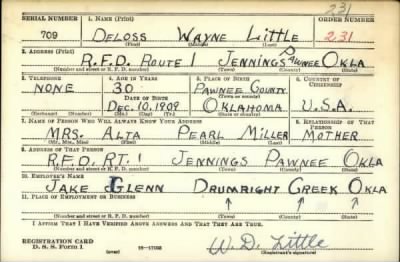 231
SERIAL NUMBER 1. NAME (Print) ORDER NUMBER
709 DELOSS WAYNE LITTLE 231
(First) (Middle) (Last)
2. ADDRESS (Print)
R.F.D. ROUTE 1 JENNINGS PAWNEE OKLA
(Number and street or R. F. D. number) (Town) (County) (State)
3. TELEPHONE 4. AGE IN YEARS 5. PLACE OF BIRTH 6. COUNTRY OF CITIZENSHIP
NONE 30 PAWNEE COUNTY
DATE OF BIRTH (Town or county)
DEC. 10, 1909 OKLAHOMA U.S.A.
(Exchange) (Number) (Mo.) (Day) (Yr.) (State or country)
7. NAME OF PERSON WHO WILL ALWAYS KNOW YOUR ADDRESS 8. RELATIONSHIP OF THAT PERSON
MRS. ALTA PEARL MILLER MOTHER
(Mr., Mrs., Miss) (First) (Middle) (Last)
9. ADDRESS OF THAT PERSON
R.F.D. RT. 1 JENNINGS PAWNEE OKLA
(Number and street or R. F. D. number) (Town) (County) (State)
10. EMPLOYER'S NAME
JAKE GLENN DRUMRIGHT CREEK OKLA
11. PLACE OF EMPLOYMENT OR BUSINESS
(Number and street or R. F. D. number) (Town) (County) (State)
I AFFIRM THAT I HAVE VERIFIED ABOVE ANSWERS AND THAT THEY ARE TRUE.
REGISTRATION CARD
D. S. S. Form 1 (over) 16-17105 W. D. Little
(Registrant's signature)